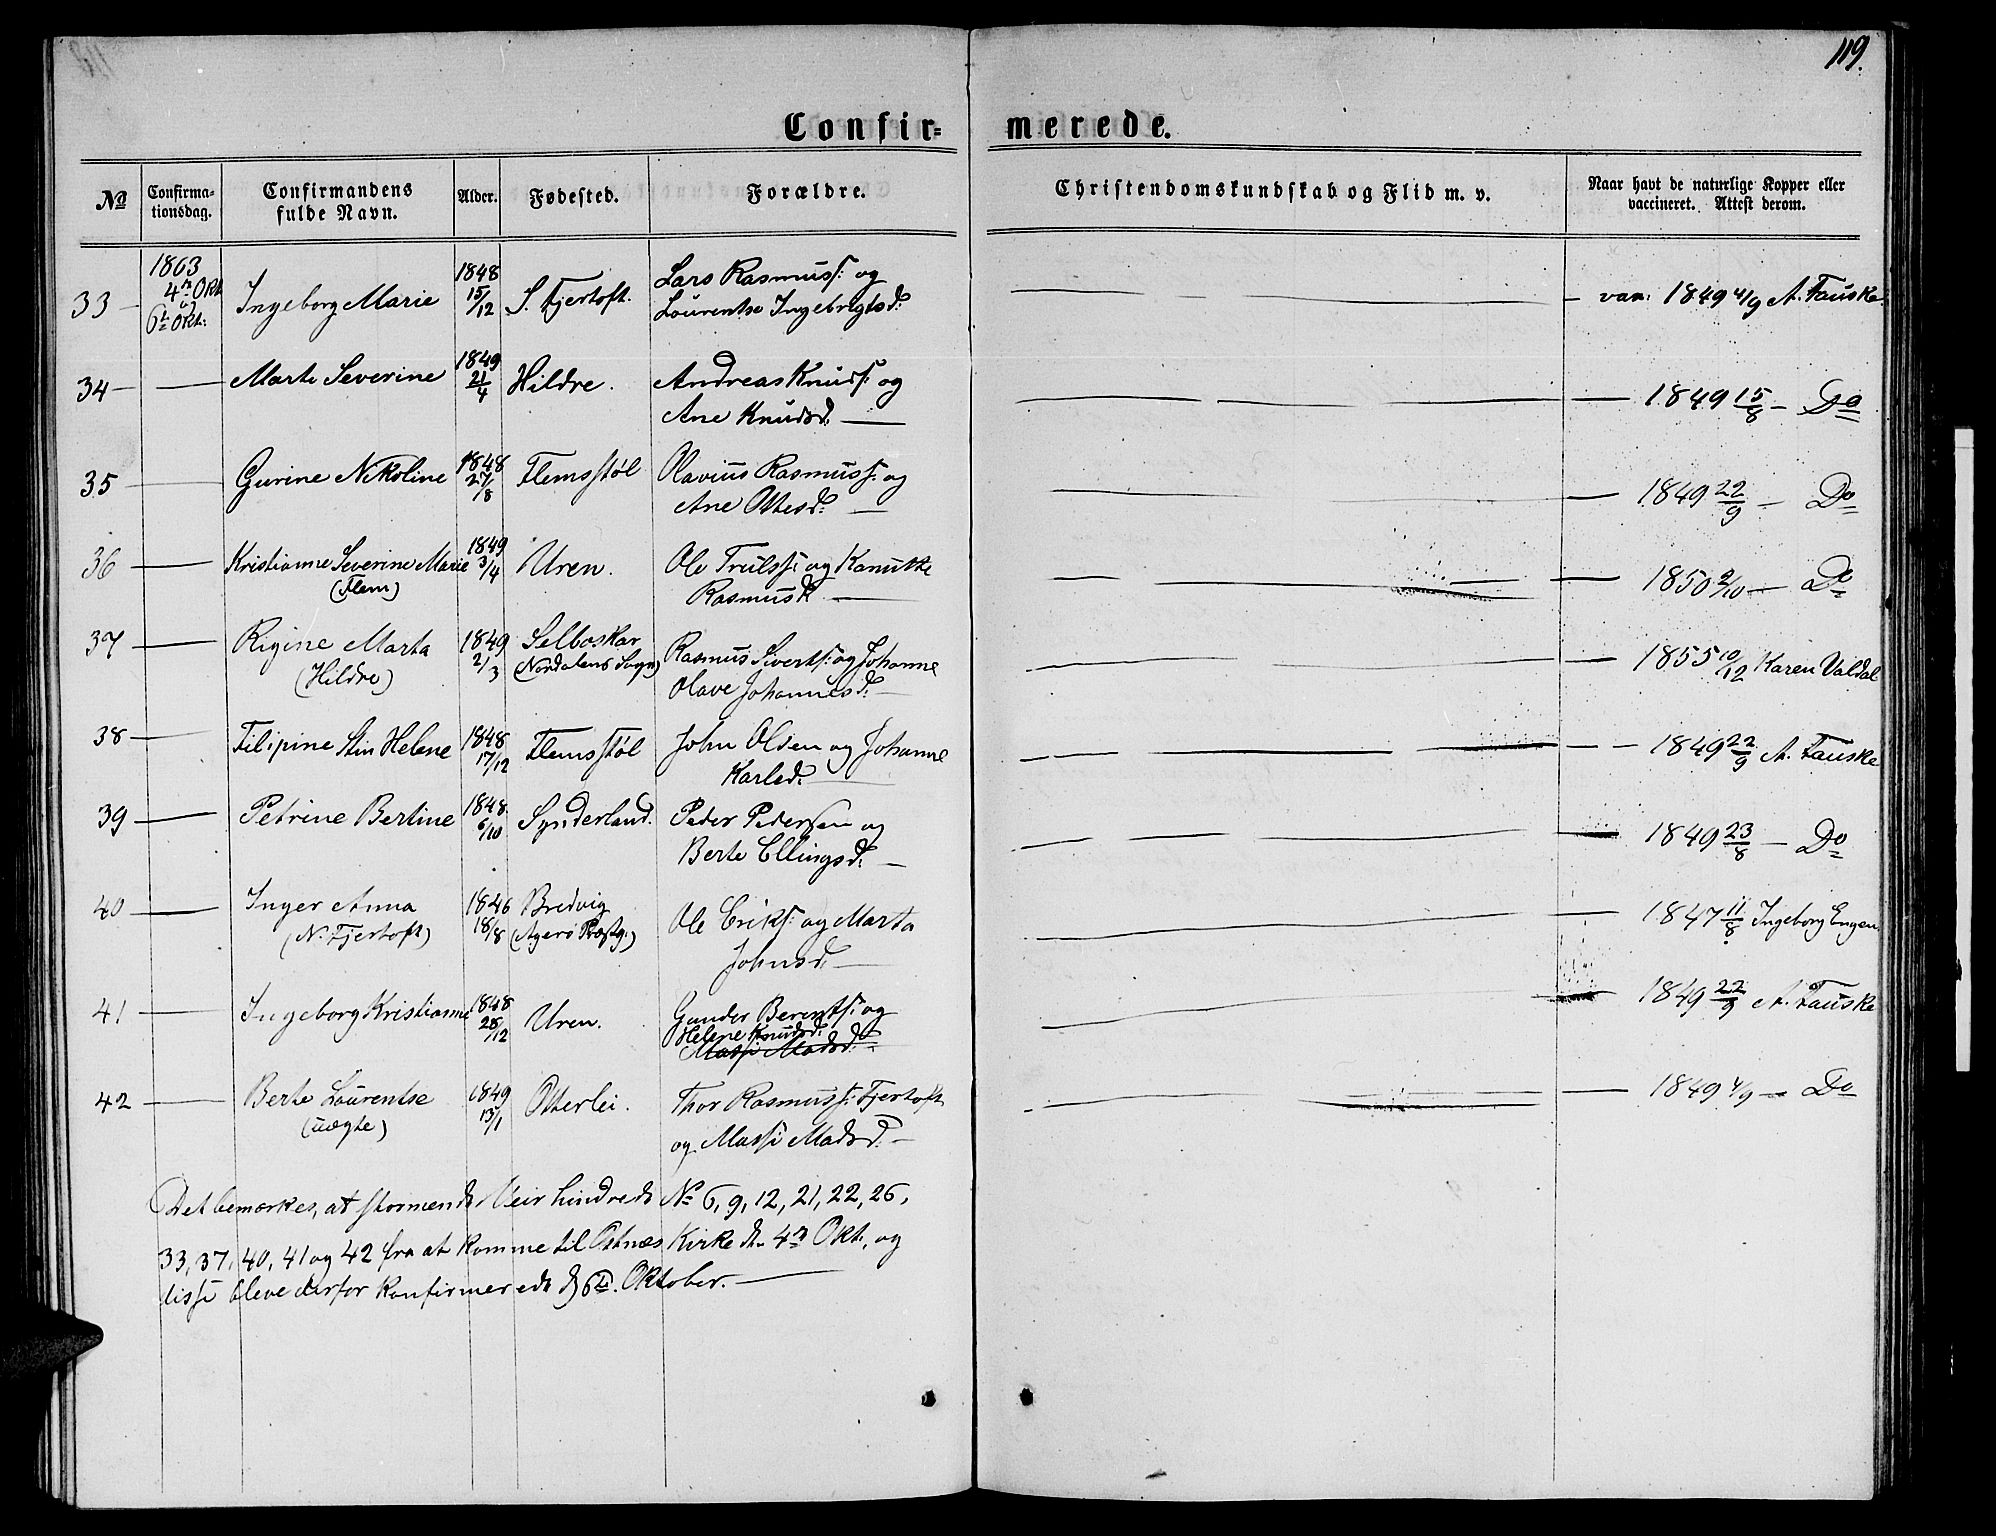 119.
Confir=
merede.
No
Confirma-
tionsdag.
Confirmandens
fulde Navn.
Alder.
Fødested.
Forældre.
Christendomskundskab og Flid m. v.
Naar havt de naturlige Kopper eller
vaccineret. Attest derom.
33 1863 4de Okt og 6te Okt: Ingeborg Marie 1848 15/12 S. Fjertoft. Lars Rasmuss: og
Lourentse Ingebrigtsd: vac: 1849 4/9 A. Fauske
34 Marte Severine 1849 21/4 Hildre. Andreas Knuds: og
Ane Knudsd. 1849 15/8 Do
35 Gurine Nikoline 1848 27/8 Flemsstøl Olavius Rasmuss: og
Ane Ottesd: 1849 22/9 Do
36 Kristianne Severine Marie 1849 3/4 Uren. Ole Trulss: og Kanutte
(Flem) Rasmusd. 1850 2/10 Do
37 Rigine Marta 1849 2/3 Selboskar Rasmus Siverts: og Johanne
(Hildre) (Nordalens Sogn) Olave Johannesd: 1855 10/12 Karen Valdal
38 Filipine Stin Helene 1848 17/12 Flemsstøl John Olsen og Johanne
Karlsd: 1849 22/9 A. Fauske
39 Petrine Bertine 1848 6/10 Synderland. Peder Pedersen og
Berte Ellingsd: 1849 23/8 Do
40 Inger Anna 1846 18/8 Bredvig Ole Eriks: og Marta
(N. Fjertoft) (Agerø Præstg:) Johnsd. 1847 11/8 Ingeborg Engen
41 Ingeborg Kristianne 1848 28/12 Uren. Gunder Berents: og
Helene Knudsd:
Massi Madsd: 1849 22/9 A. Fauske
42 Berte Lourentse 1849 13/1 Otterlei. Thor Rasmuss: Fjertoft
(uægte) og Massi Madsd. 1849 4/9 Do
Det bemærkes, at stormende Veir hindrede No 6, 9, 12, 21, 22, 26,
33, 37, 40, 41 og 42 fra at komme til Østnæs Kirke d. 4de Okt., og
disse bleve derfor konfirmerede d. 6te. Oktober.